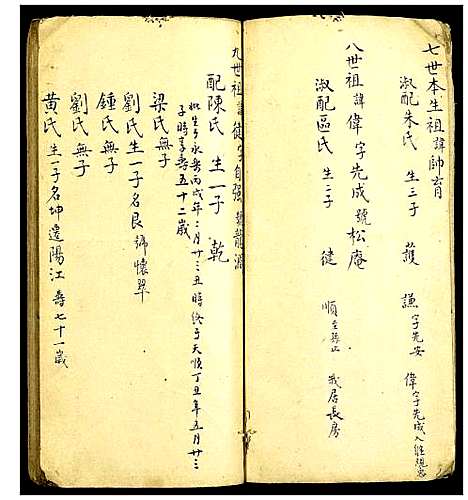 七世本生祖諱帥育
淑配朱氏 生三子 護 謙字先安 偉字先成入繼
八世祖諱偉字先成號松庵
淑配區氏 生二子 健 順 我居長房
九世祖諱健字自強號龍淵
配陳氏 生一子 乾
生于永樂丙戌年二月廿三丑時終于天順丁丑年五月廿三
子時享壽五十二歲
梁氏無子
劉氏生一子名艮 號懷翠
鍾氏無子
劉氏無子
黃氏生一子名坤遷陽江 壽七十一歲